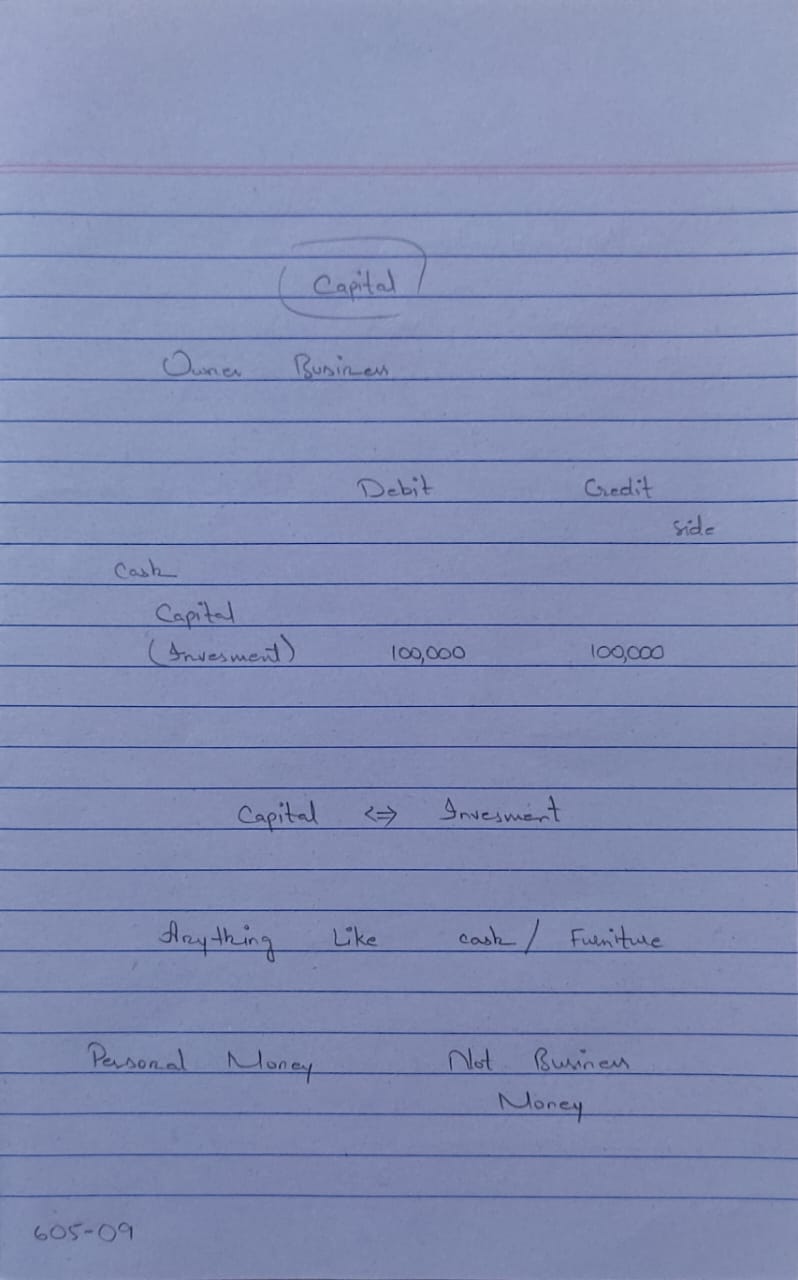 Capital
Owner Business
Debit Credit
side
Cash
Capital
(Invesment) 100,000 100,000
Capital <=> Invesment
Anything Like cash / Furniture
Personal Money Not Business
Money
605-09